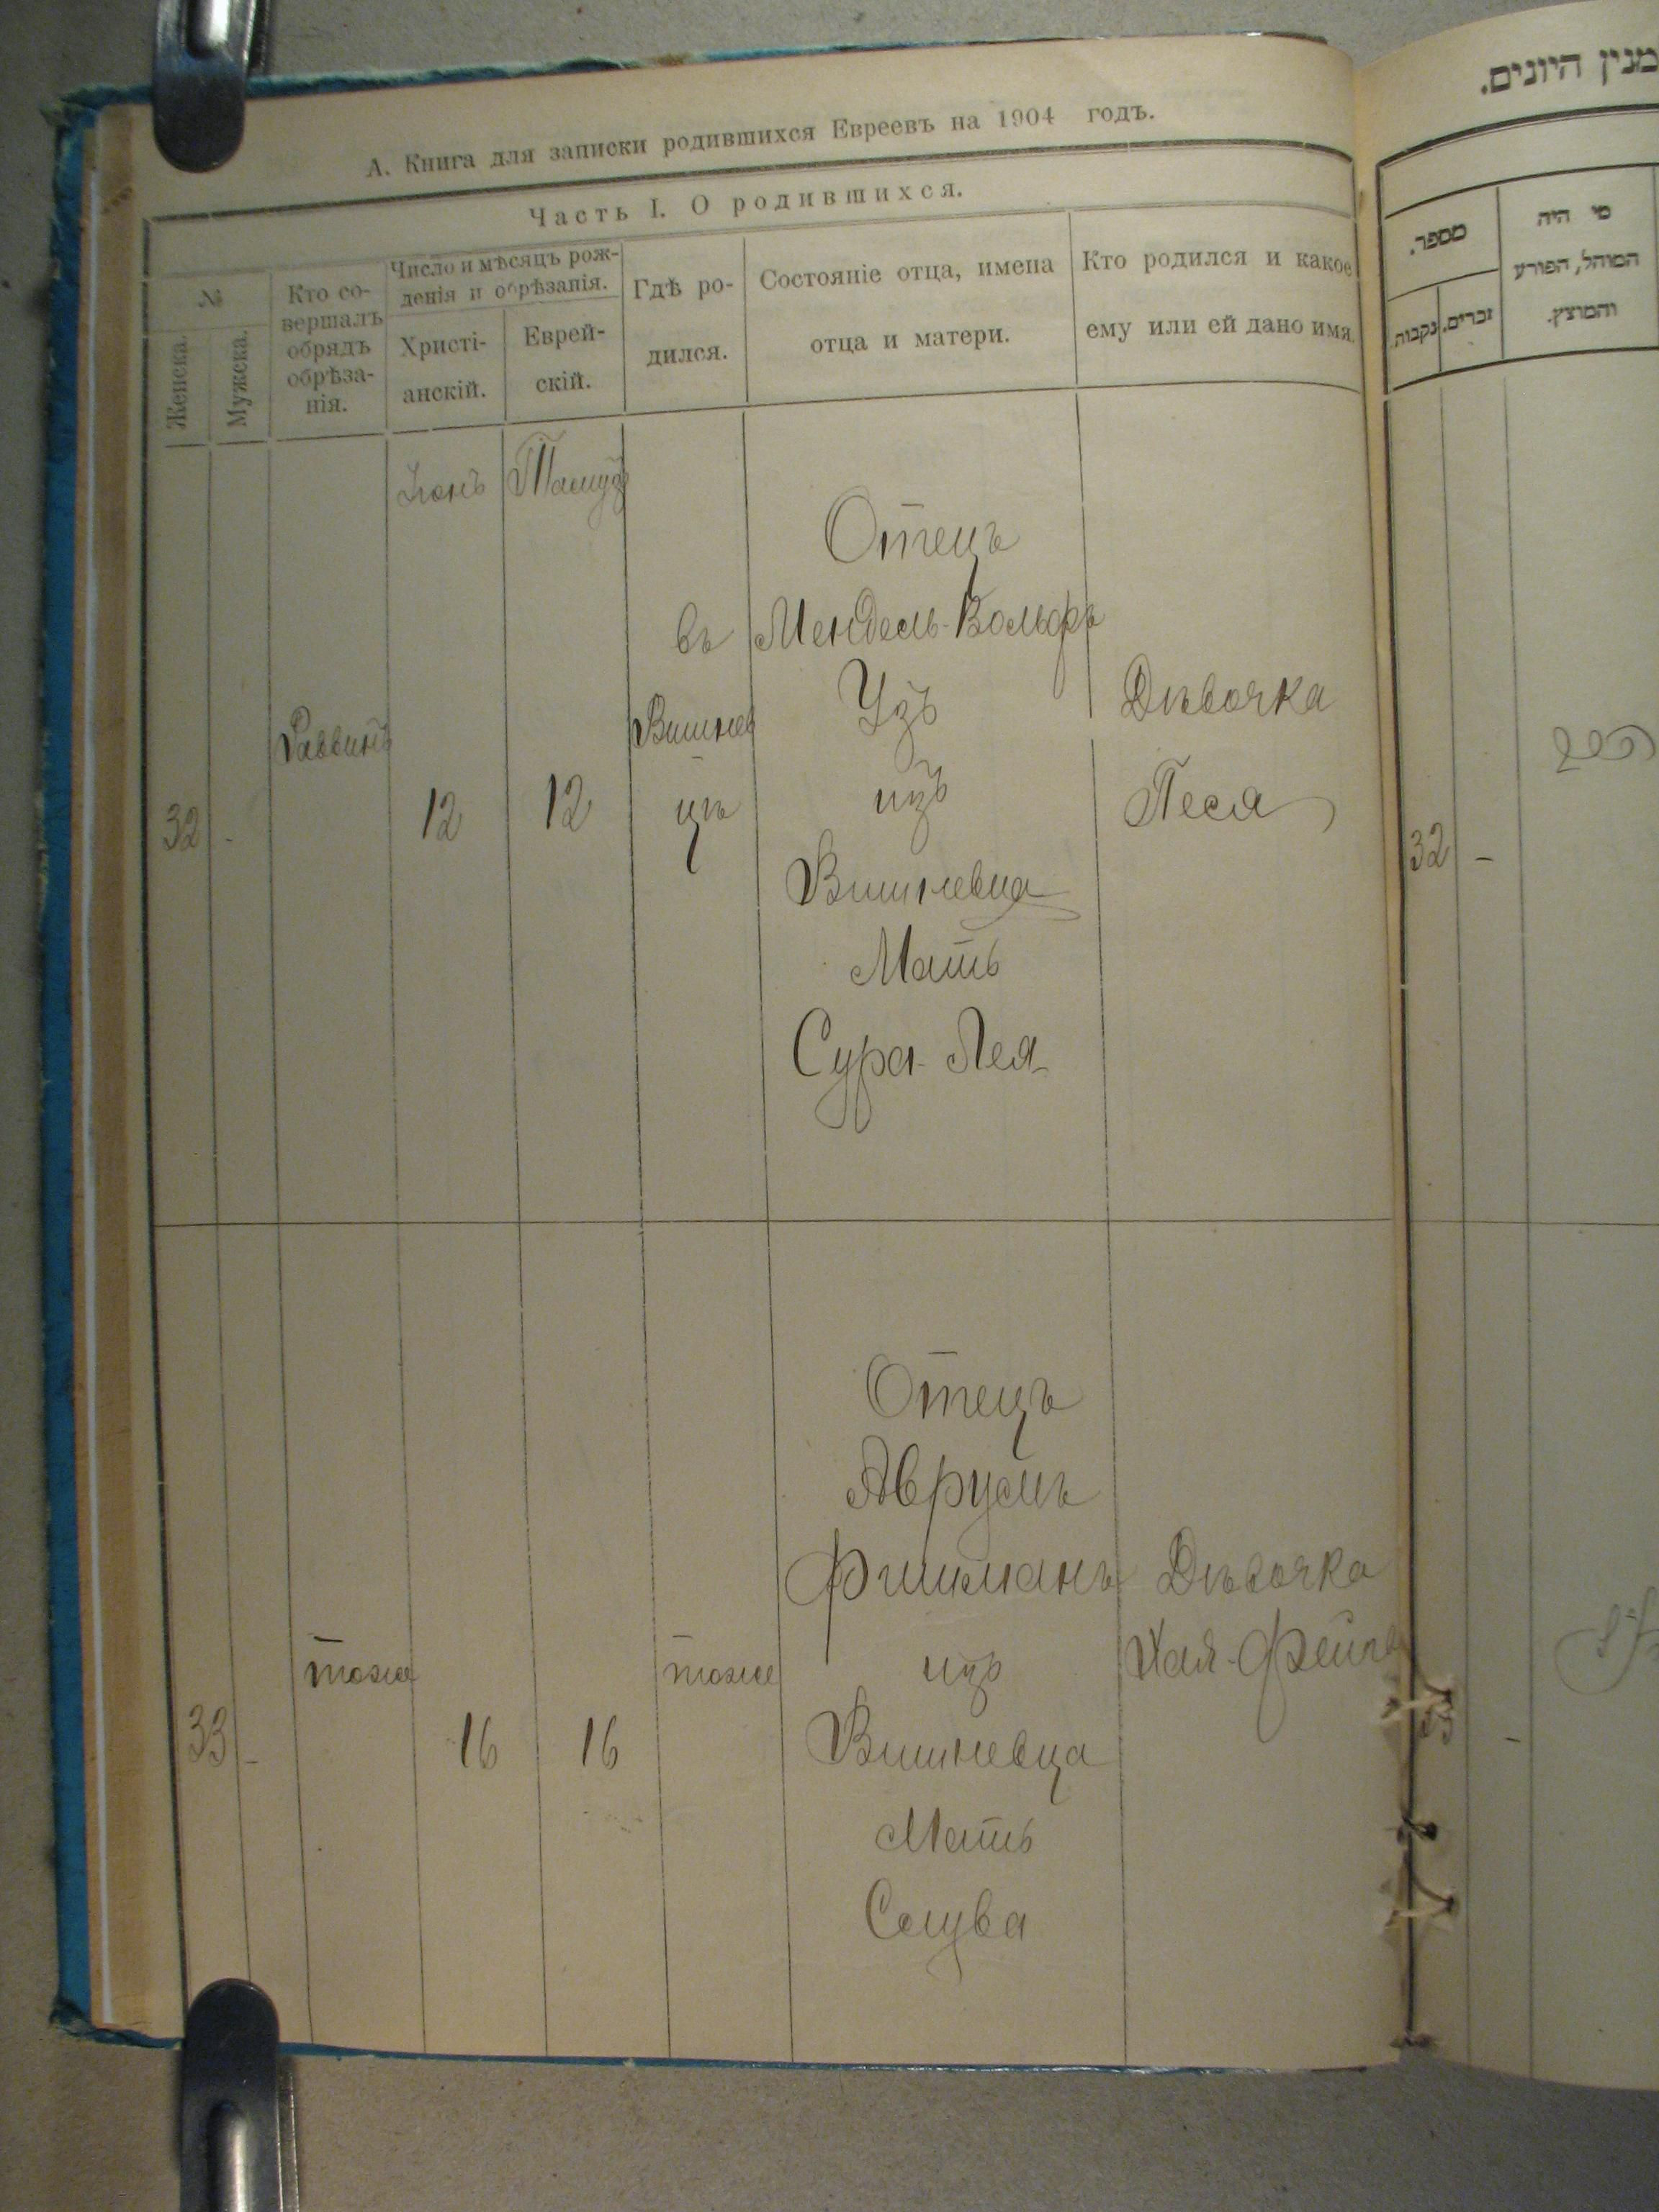 А. Книга для записки родившихся Евреевъ на 1904 годъ.
Часть I. О родившихся.
№
Женска.
Мужска.
Кто со-
вершалъ
обрядъ
обрѣза-
нія.
Число и мѣсяцъ рож-
денія и обрѣзанія.
Христі-
анскій.
Еврей-
скій.
Гдѣ ро-
дился.
Состояніе отца, имена
отца и матери.
Кто родился и какое
ему или ей дано имя.
Тамузъ
32
-
Раввинъ
12
12
въ
Вишнев
цѣ
Отецъ
Мендель-Вольфъ
Узъ
изъ
Вишневца
Мать
Сура-Лея
Дѣвочка
Песя
33
-
тоже
16
16
тоже
Отецъ
Аврумъ
Фишманъ
изъ
Вишневца
Мать
Дѣвочка
Хая-Фейга
מנין היונים.
מספר.
נקבות
זכרים.
מי היה
המוהל, הפורע
והמוצץ.
32
-
-